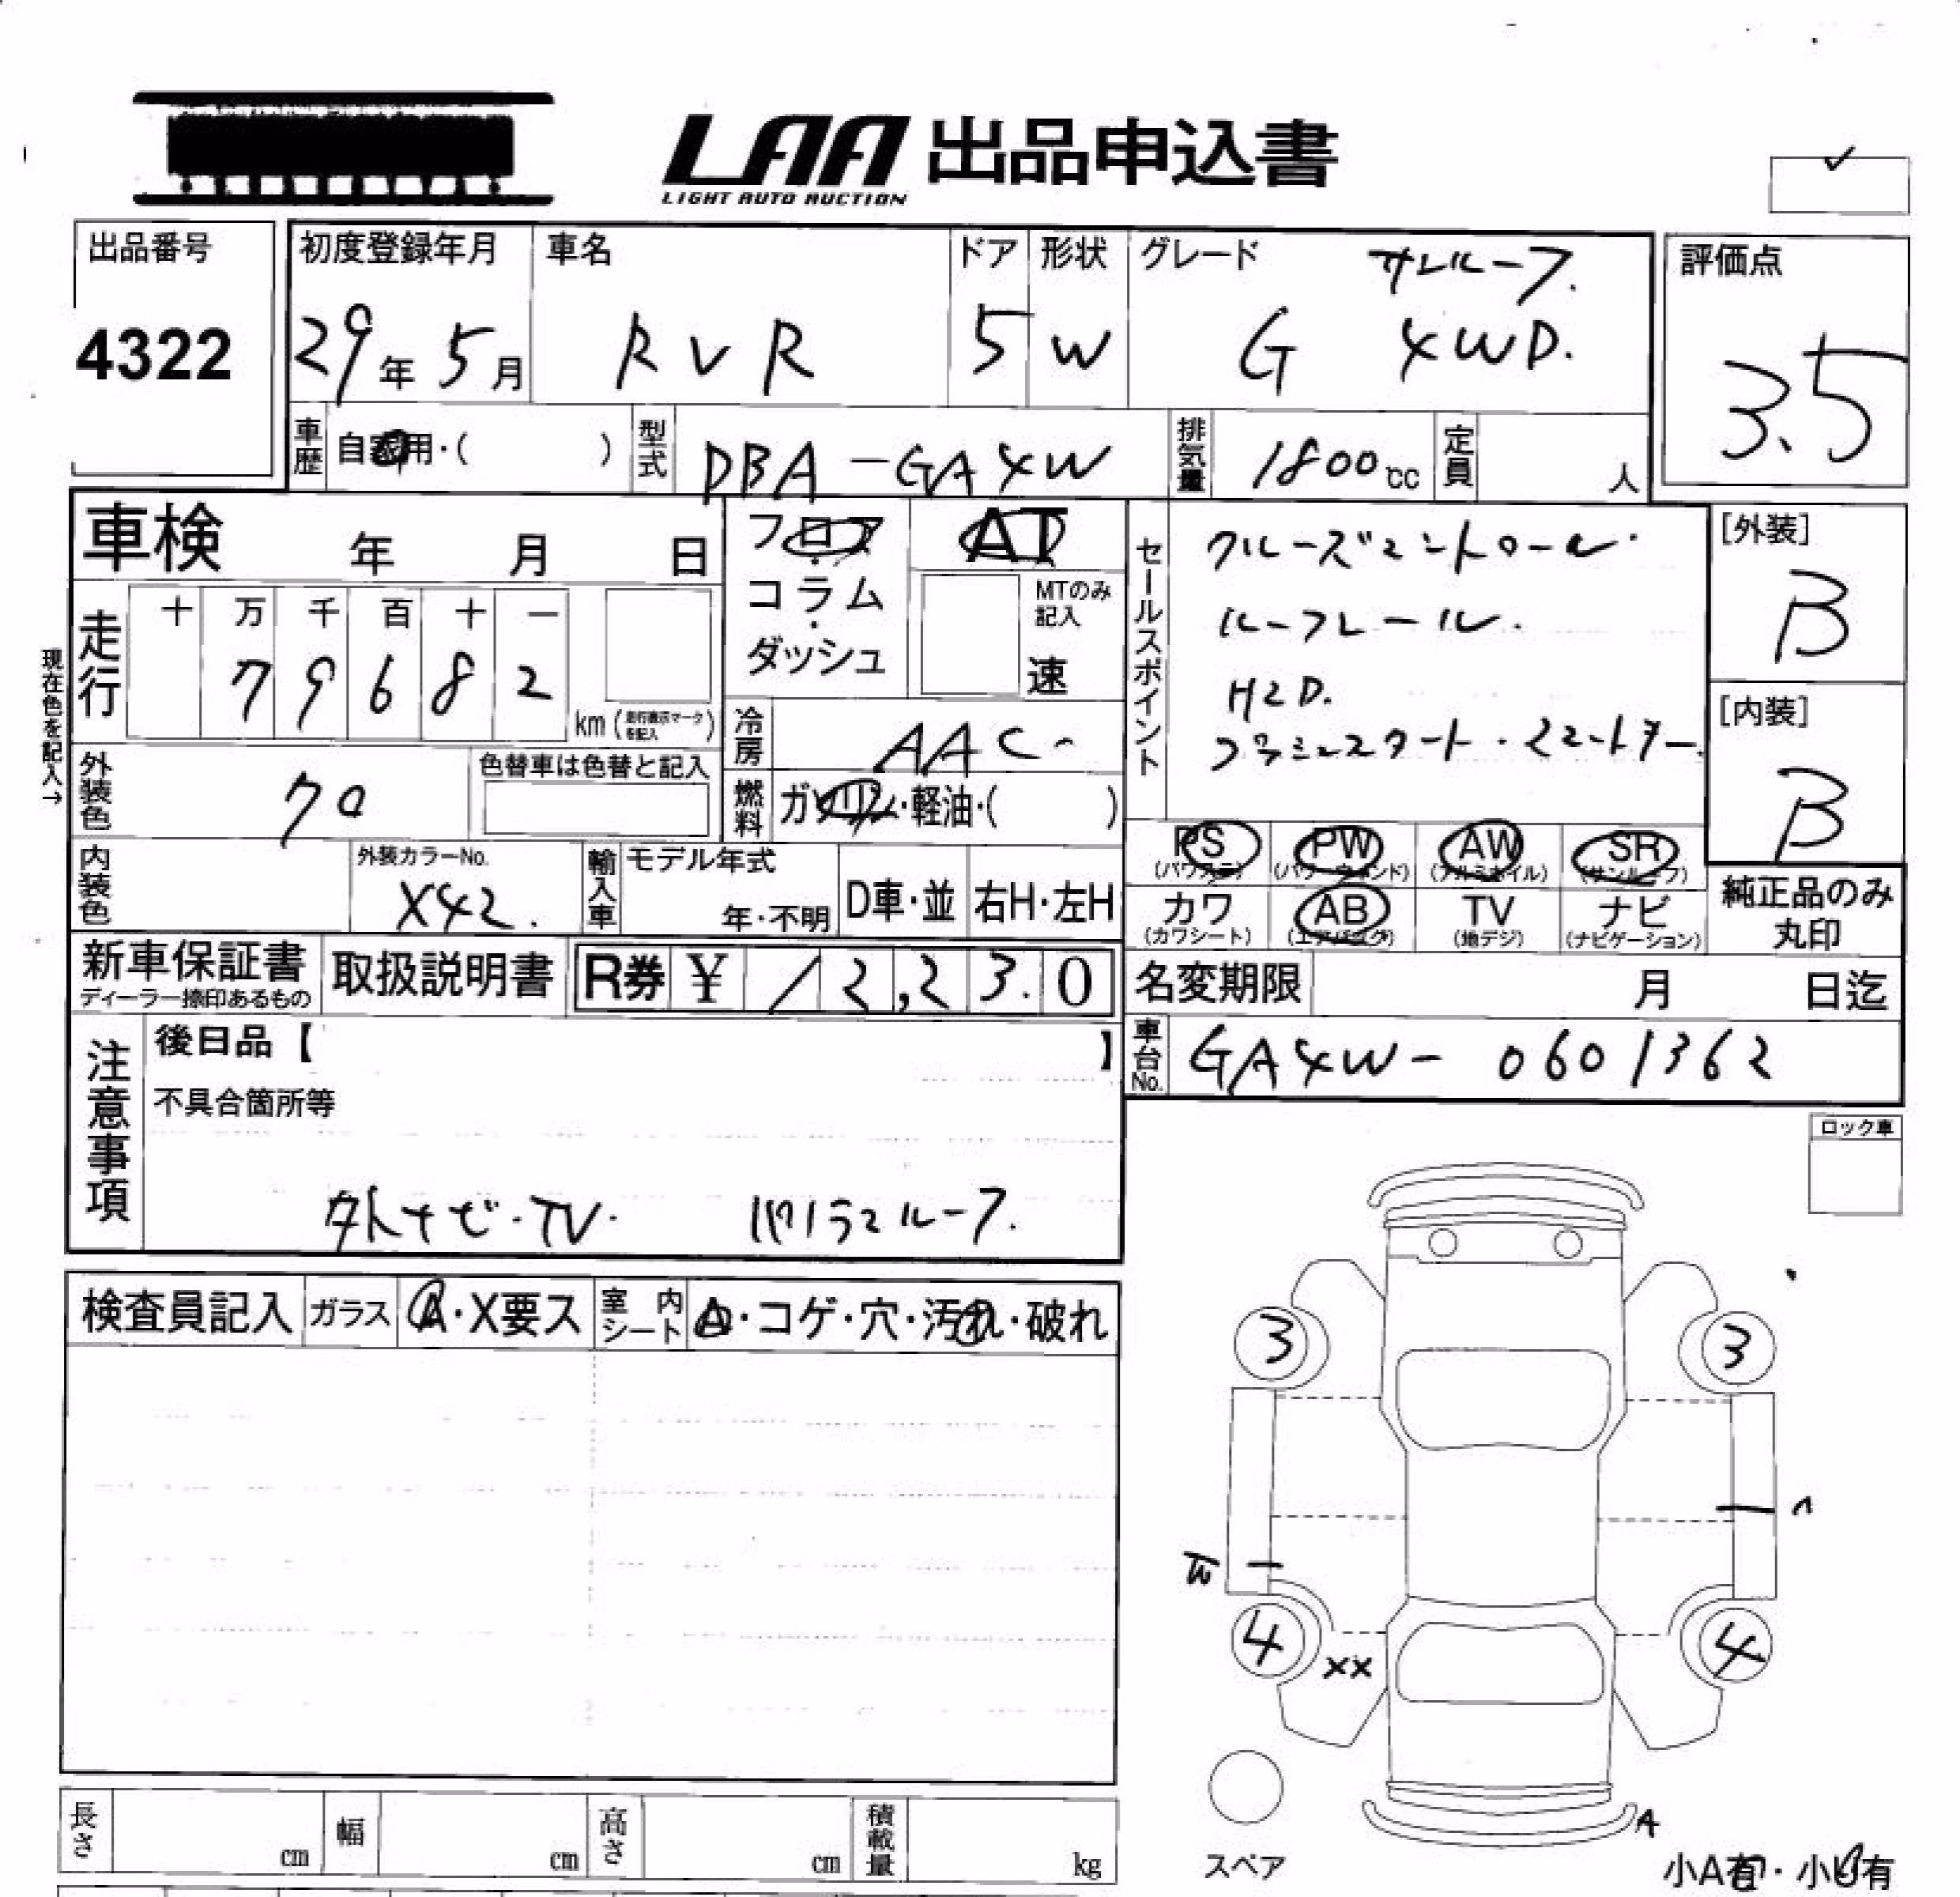 LAA 出品申込書
LIGHT AUTO AUCTION
出品番号
4322
初度登録年月
29年 5月
車名
RVR
ドア
5
形状
W
グレード
サンルーフ.
G 4WD.
評価点
3.5
車歴 自家用・( )
型式 DBA-GA4W
排気量 1800cc
定員 人
車検 年 月 日
フロア・コラム・ダッシュ
AT
MTのみ記入
速
セールスポイント
クルーズコントロール.
ルーフレール.
HID.
プッシュスタート.
[外装]
B
[内装]
B
現在色を記入→
走行
十 万 千 百 十 一
7 9 6 8 2
km (走行表示マークを記入)
冷房 AAC
外装色 クロ
色替車は色替と記入
燃料 ガソリン・軽油・( )
内装色
外装カラーNo.
X42.
輸入車
モデル年式
年・不明
D車・並
右H・左H
PS (パワステ)
PW (パワーウィンド)
AW (アルミホイル)
SR (サンルーフ)
カワ (カワシート)
AB (エアバック)
TV (地デジ)
ナビ (ナビゲーション)
純正品のみ丸印
新車保証書
ディーラー捺印あるもの
取扱説明書
R券 ¥ 12,23.0
名変期限 月 日迄
車台No. GA4W-0601362
注意事項
後日品【 】
不具合箇所等
外ナビ・TV. パノラマルーフ.
ロック車
検査員記入
ガラス A・X要ス
室内シート A・コゲ・穴・汚れ・破れ
3 3
4 4
XX
A
スペア
小A有・小U有
長さ cm
幅 cm
高さ cm
積載量 kg